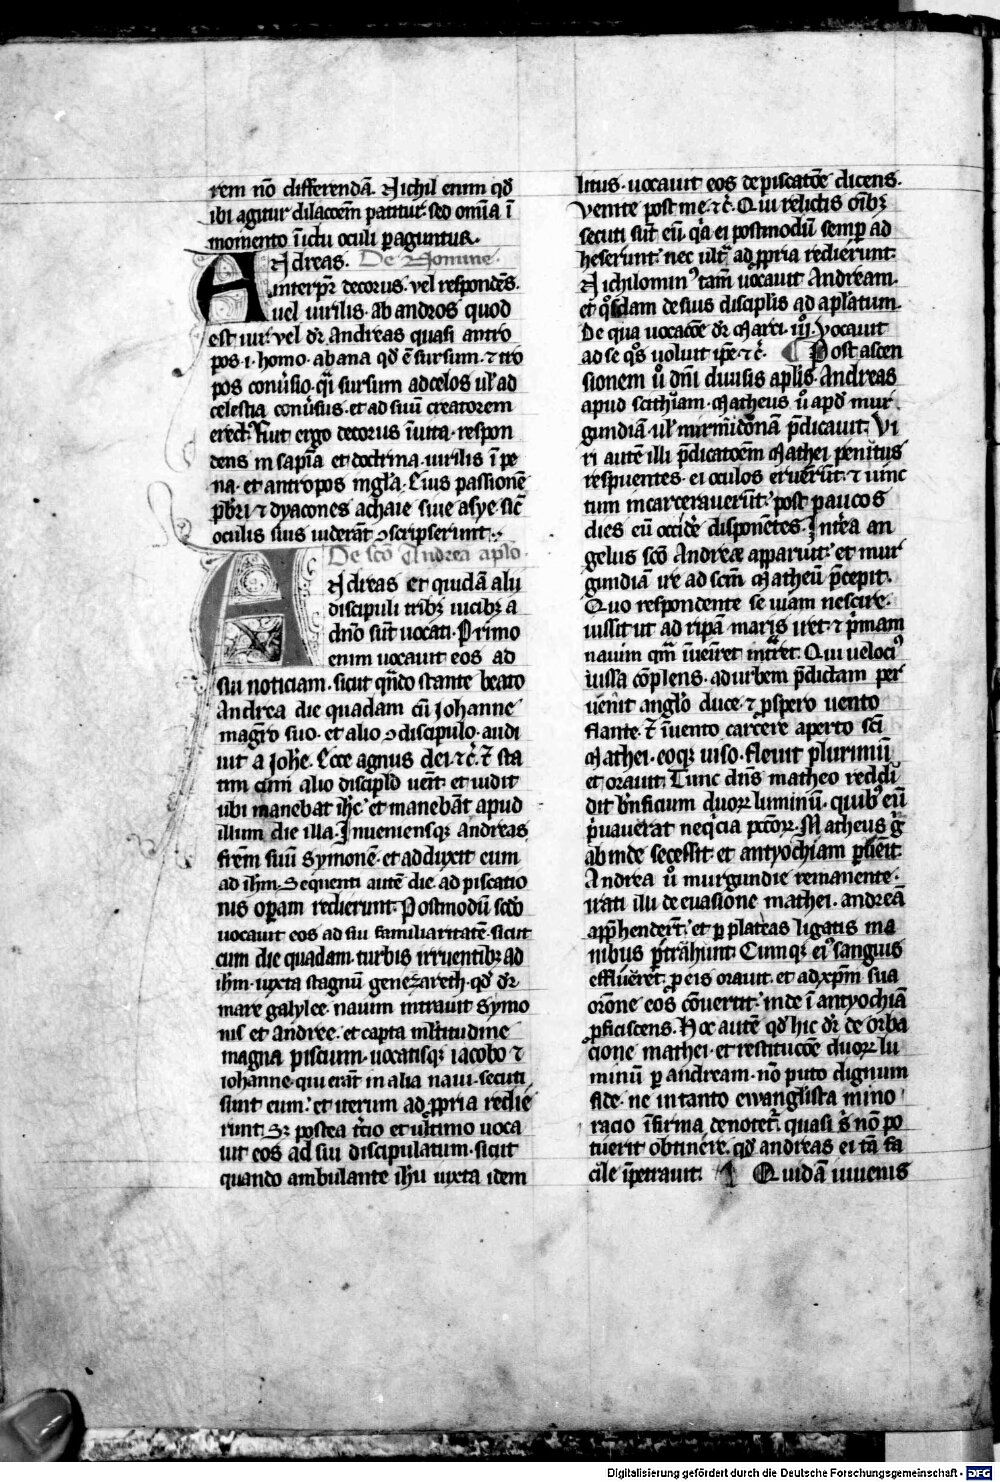 rem nō differendā. Nichil enim qđ
ibi agitur dilacōem patitur sed omīa ī
momento ī ictu oculi ꝑaguntur.
ANdreas. De Nomine.
interpr̄ decorus. vel respondēs.
uel uirilis. ab andros quod
est uir. vel dr̄ Andreas quasi antro
pos .i. homo. ab ana qđ ē sursum. ⁊ tro
pos conūsio. q̄i sursum ad celos ul' ad
celestia conūsus. et ad suū creatorem
erect᷒. Fuit ergo decorus ī uita. respon
dens in sapīa et doctrina. uirilis ī pe
na. et antropos in gl'a. Eius passionē
p̄b'ri ⁊ dyacones achaie siue asye sic̄
oculis suis uiderāt ꝯscripserunt.
De sc̄o Andrea ap'lo.
ANdreas et quidā alii
discipuli tribꝫ uicibꝫ a
dn̄o sūt uocati. Primo
enim uocauit eos ad
sui noticiam. sicut qn̄do stante beato
Andrea die quadam cū iohanne
magr̄o suo. et alio ꝯdiscipulo. audi
uit a ioh'e. Ecce agnus dei. ⁊ c̄. ⁊ sta
tim cum alio discipl'o uēit. et uidit
ubi manebat ih̄c. et manebāt apud
illum die illa. Inueniensqꝫ andreas
fr̄em suū symonē. et adduxit eum
ad ih̄m. Sequenti autē die. ad piscatio
nis opam redierunt. Postmodū sc̄do
uocauit eos ad sui familiaritatē. sicut
cum die quadam. turbis irruentibꝫ ad
ih̄m. iuxta stagnū genezareth. qđ dr̄
mare galylee. nauim intrauit symo
nis et andree. et capta ml'titudine
magna piscium. uocatisqꝫ iacobo ⁊
iohanne. qui erāt in alia naui. secuti
sunt eum. et iterum ad ꝓpria redie
runt. Sꝫ postea tc̄io et ultimo uoca
uit eos ad sui discipulatum. sicut
quando ambulante ih̄u iuxta idem
litus. uocauit eos de piscatōe dicens.
venite post me. ⁊ c̄. Qui relictis oībꝫ
secuti sūt eū. q̄a ei postmodū semꝑ ad
heserunt. nec ult̄ ad ꝓpria redierunt.
Nichilomin᷒ tam̄ uocauit Andream.
et q̄sdam de suis discipl'is ad apl'atum.
De qua uocacōe dr̄ Marci. iij. vocauit
ad se q̄s uoluit ip̄e. ⁊ c̄. ¶ Post ascen
sionem ū dn̄i diuisis apl'is. Andreas
apud scithiam. Matheus ū apđ mur
gundiā. ul' mirmidonā p̄dicauit. Vi
ri autē illi p̄dicatoēm Mathei penitus
respuentes. ei oculos eruerūt. ⁊ uinc
tum incarcerauerūt. post paucos
dies eū occidē disponētes. Int'ea an
gelus sc̄o Andreæ apparuit. et mur
gundiā ire ad sc̄m Matheū p̄cepit.
Quo respondente se uiam nescire.
iussit ut ad ripā maris iret. ⁊ p'mam
nauim qm̄ īueīret intr̄et. Qui ueloci᷒
iussa cōplens. ad urbem p̄dictam per
uenit angl'o duce. ⁊ ꝓspero uento
flante. ⁊ īuento carcere aperto sc̄i
Mathei. eoqꝫ uiso. fleuit plurimū
et orauit. Tunc dn̄s matheo reddi
dit b'nficium duoꝝ luminū. quibꝰ eū
p'uauerat neq'cia pctōꝝ. Matheus g̊
ab inde secessit. et antyochiam ꝑuēit.
Andrea ū murgundie remanente.
irati illi de euasione mathei. andreā
app̄henderūt. et ꝑ plateas ligatis ma
nibus p̄trahunt. Cumqꝫ ei᷒ sanguis
efflueret. ꝓ eis orauit. et ad xp̄m sua
or̄one eos cōuertit. inde ī antyochiā
ꝓficiscens. Hoc autē qđ hic dr̄ de orba
cione mathei. et restitucōe duoꝝ lu
minū ꝑ andream. nō puto dignum
fide. ne in tanto ewanglista mino
racio īfirma denotet᷑. quasi s' nō po
tuerit obtinere. qđ andreas ei tā fa
cile īpetrauit. ¶ Quidā iuuenis
Digitalisierung gefördert durch die Deutsche Forschungsgemeinschaft - DFG